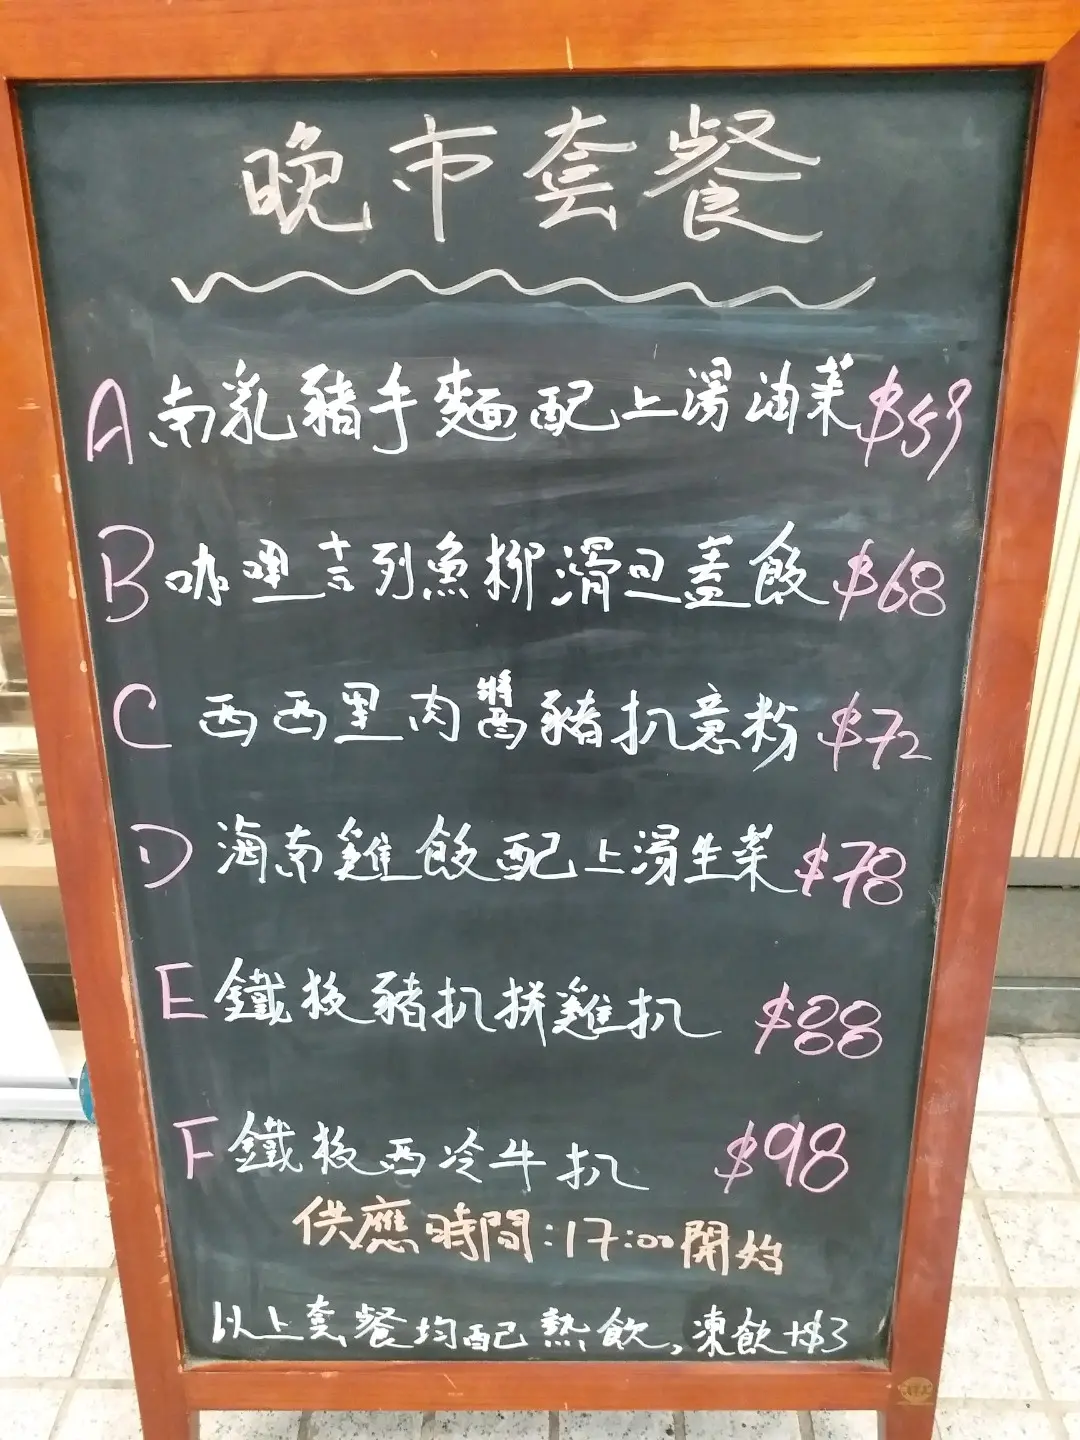 晚市套餐
A 南乳豬手麵配上湯油菜 $59
B 咖喱吉列魚柳滑旦蓋飯 $68
C 西西里肉醬豬扒意粉 $72
D 海南雞飯配上湯生菜 $78
E 鐵板豬扒拼雞扒 $88
F 鐵板西冷牛扒 $98
供應時間:17:00開始
以上套餐均配熱飲,凍飲+$3